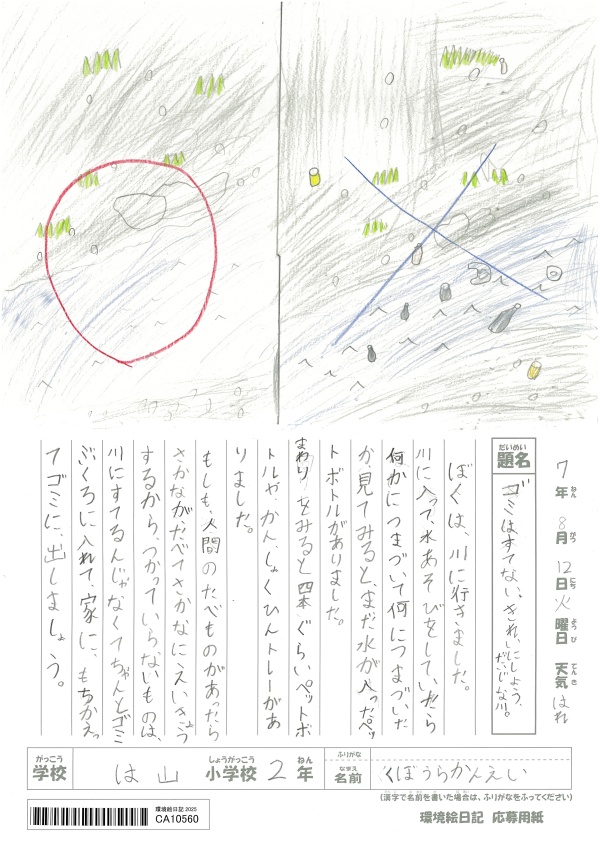 7年 8月 12日 火曜日 天気 はれ
ねん がつ にち ようび てんき
だいめい
題名
ゴミはすてない、きれいにしよう、
だいじな川。
ぼくは、川に行きました。
川に入って、水あそびをしていたら
何かにつまづいて何につまづいた
か、見てみると、まだ水が入ったペッ
トボトルがありました。
まわりをみると四本ぐらいペットボ
トルや、かん、しょくひんトレーがあ
りました。
もしも、人間のたべものがあったら
さかながたべてさかなにえいきょう
するから、つかっていらないものは、
川にすてるんじゃなくてちゃんとゴミ
ぶくろに入れて、家に、もちかえっ
てゴミに、出しましょう。
がっこう しょうがっこう ねん
学校 は山 小学校 2年
ふりがな
なまえ
名前 くぼうらかんえい
(漢字で名前を書いた場合は、ふりがなをふってください)
環境絵日記 2025
CA10560
環境絵日記 応募用紙